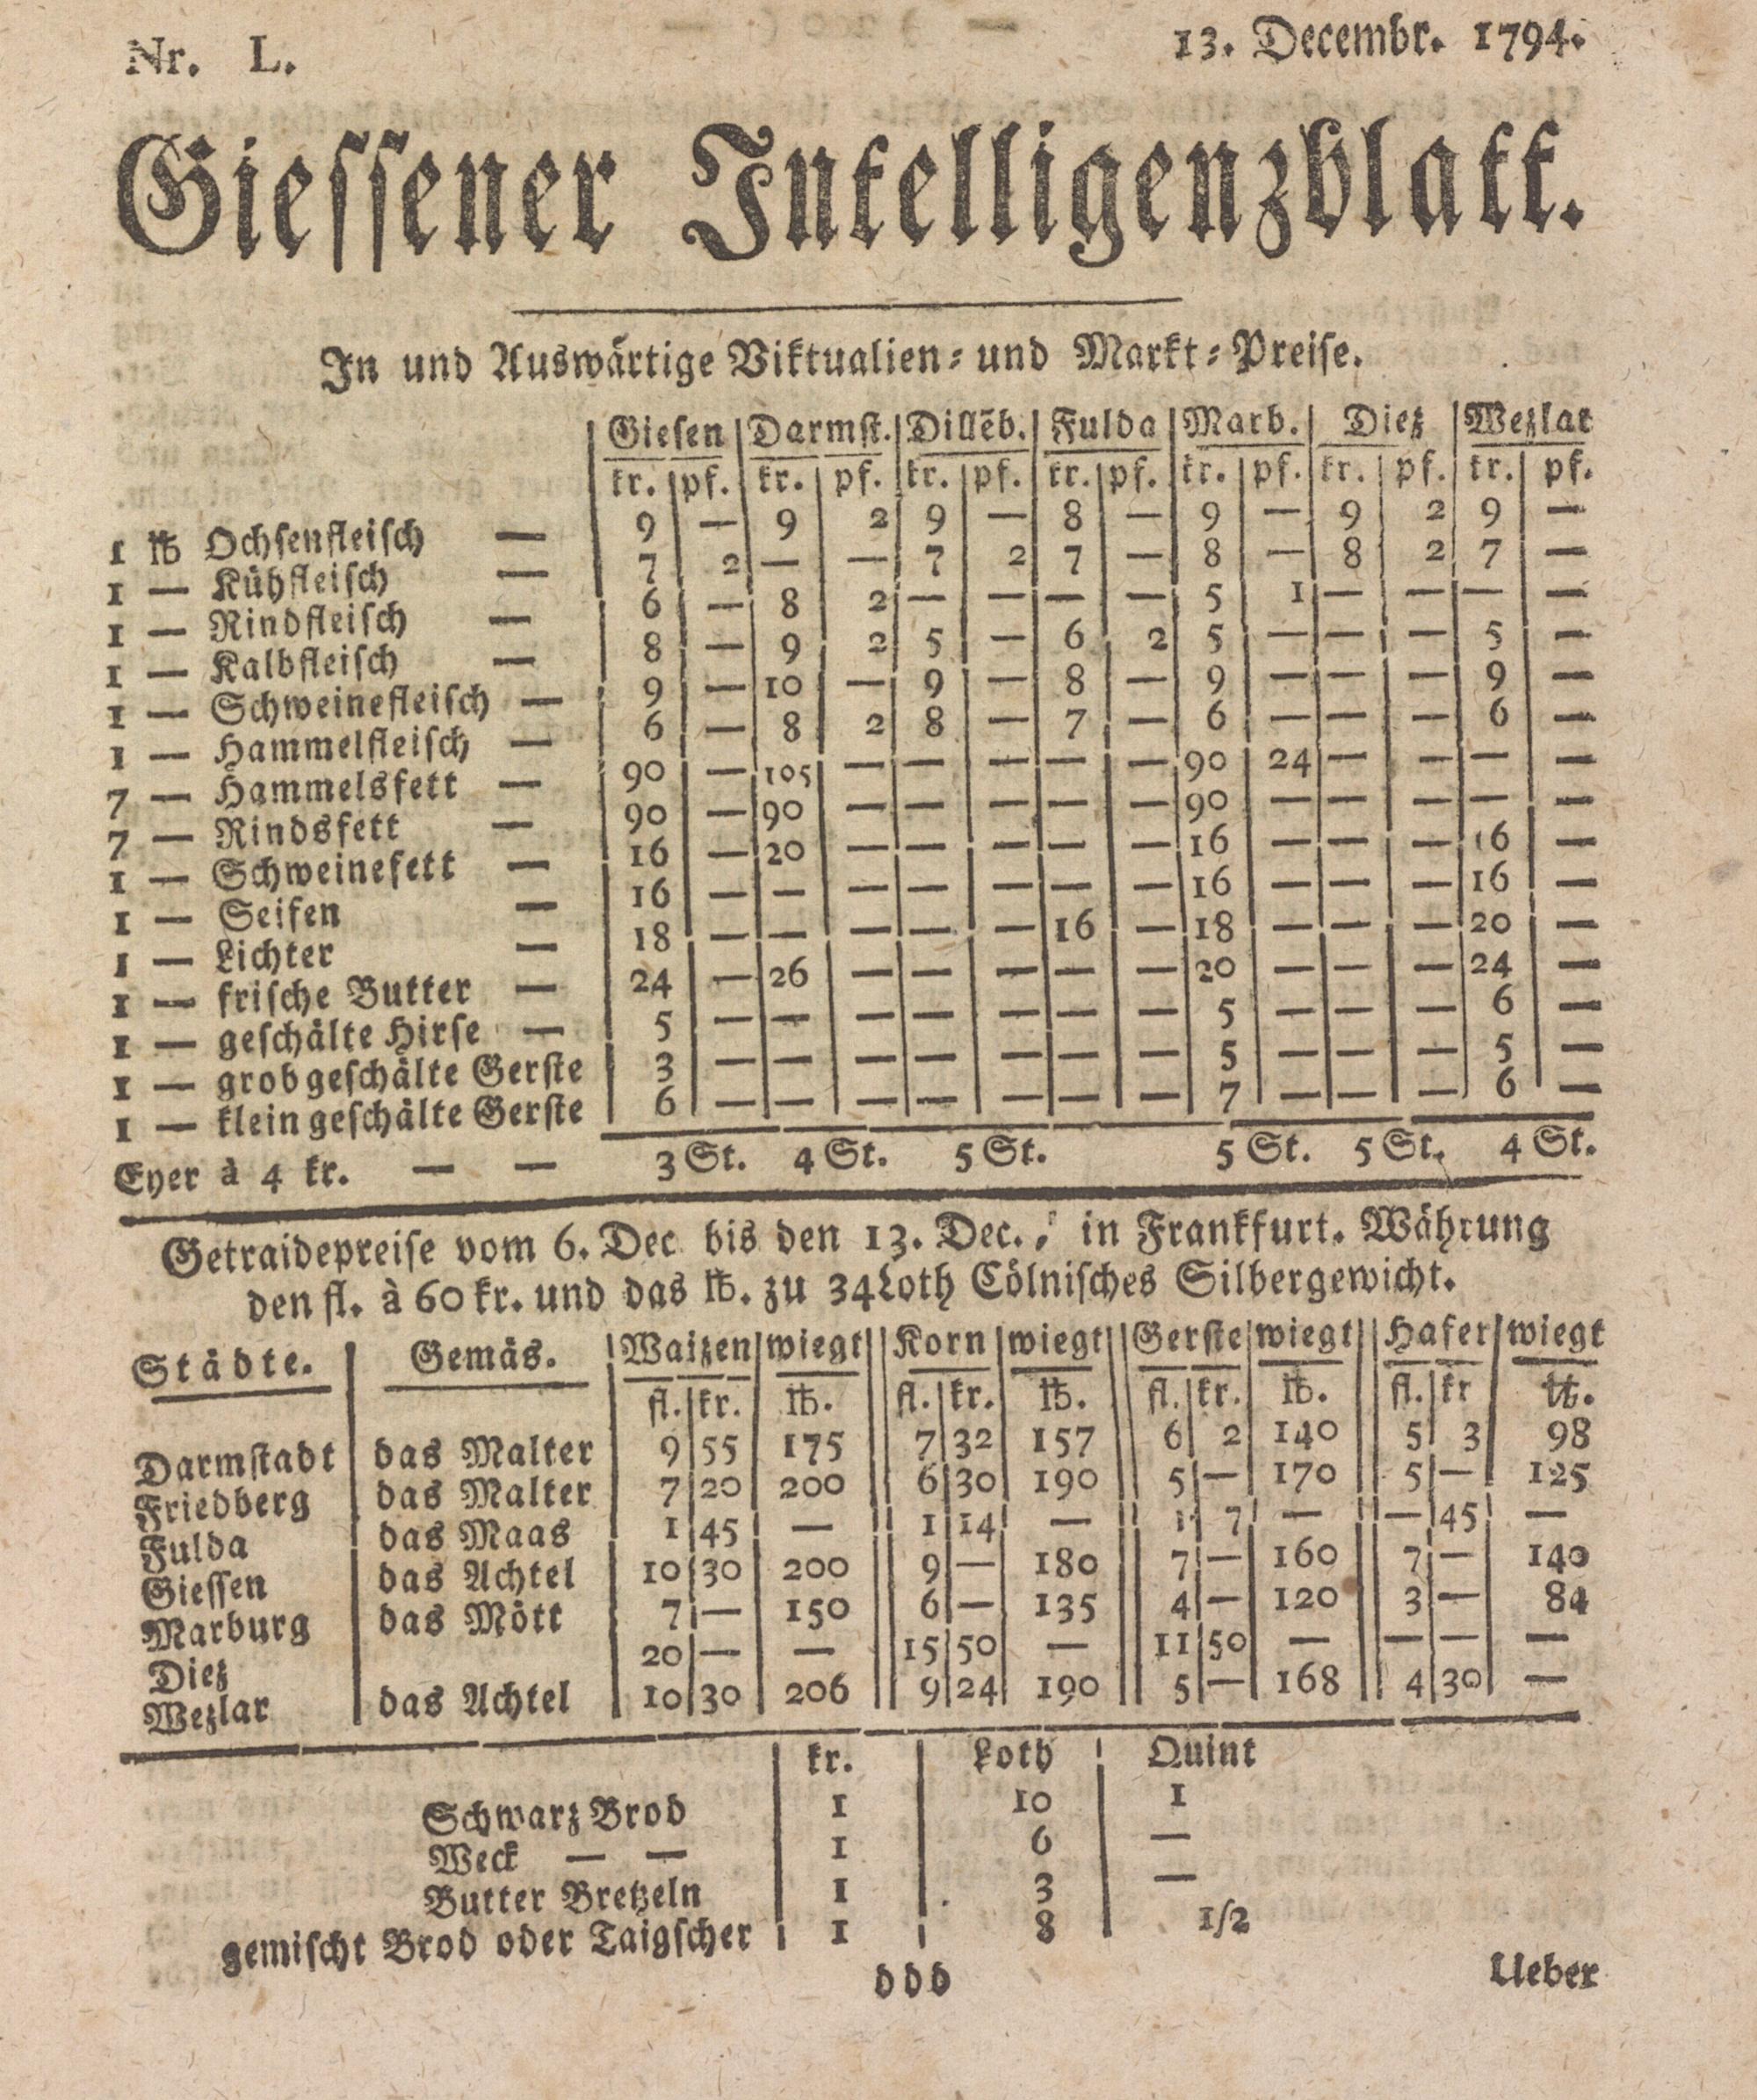 Nr. L. 13. Decembr. 1794.
Giessener Intelligenzblatt.
In und Auswärtige Viktualien- und Markt-Preise.
Giesen Darmst. Dillēb. Fulda Marb. Diez Wezlar
kr. pf. kr. pf. kr. pf. kr. pf. kr. pf. kr. pf. kr. pf.
1 ℔ Ochsenfleisch — 9 — 9 2 9 — 8 — 9 — 9 2 9 —
1 — Kühfleisch — 7 2 — — 7 2 7 — 8 — 8 2 7 —
1 — Rindfleisch — 6 — 8 2 — — — — 5 1 — — — —
1 — Kalbfleisch — 8 — 9 2 5 — 6 2 5 — — — 5 —
1 — Schweinefleisch — 9 — 10 — 9 — 8 — 9 — — — 9 —
1 — Hammelfleisch — 6 — 8 2 8 — 7 — 6 — — — 6 —
7 — Hammelsfett — 90 — 105 — — — — — 90 24 — — — —
7 — Rindsfett — 90 — 90 — — — — — 90 — — — — —
1 — Schweinefett — 16 — 20 — — — — — 16 — — — 16 —
1 — Seifen — 16 — — — — — — — 16 — — — 16 —
1 — Lichter — 18 — — — — — 16 — 18 — — — 20 —
1 — frische Butter — 24 — 26 — — — — — 20 — — — 24 —
1 — geschälte Hirse — 5 — — — — — — — 5 — — — 6 —
1 — grob geschälte Gerste 3 — — — — — — — 5 — — — 5 —
1 — klein geschälte Gerste 6 — — — — — — — 7 — — — 6 —
Eyer à 4 kr. — — 3 St. 4 St. 5 St. 5 St. 5 St. 4 St.
Getraidepreise vom 6. Dec bis den 13. Dec., in Frankfurt. Währung
den fl. à 60 kr. und das ℔. zu 34 Loth Cölnisches Silbergewicht.
Städte. Gemäs. Waizen wiegt Korn wiegt Gerste wiegt Hafer wiegt
fl. kr. ℔. fl. kr. ℔. fl. kr. ℔. fl. kr ℔.
Darmstadt das Malter 9 55 175 7 32 157 6 2 140 5 3 98
Friedberg das Malter 7 20 200 6 30 190 5 — 170 5 — 125
Fulda das Maas 1 45 — 1 14 — 1 7 — — 45 —
Giessen das Achtel 10 30 200 9 — 180 7 — 160 7 — 140
Marburg das Mött 7 — 150 6 — 135 4 — 120 3 — 84
Diez 20 — — 15 50 — 11 50 — — — —
Wezlar das Achtel 10 30 206 9 24 190 5 — 168 4 30 —
kr. Loth Quint
Schwarz Brod 1 10 1
Weck — — 1 6 —
Butter Bretzeln 1 3 —
gemischt Brod oder Taigscher 1 8 1/2
ddd Ueber